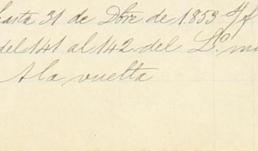 hasta 31 de Dbre de 1853
del 141 al 142 del L.º
A la vuelta